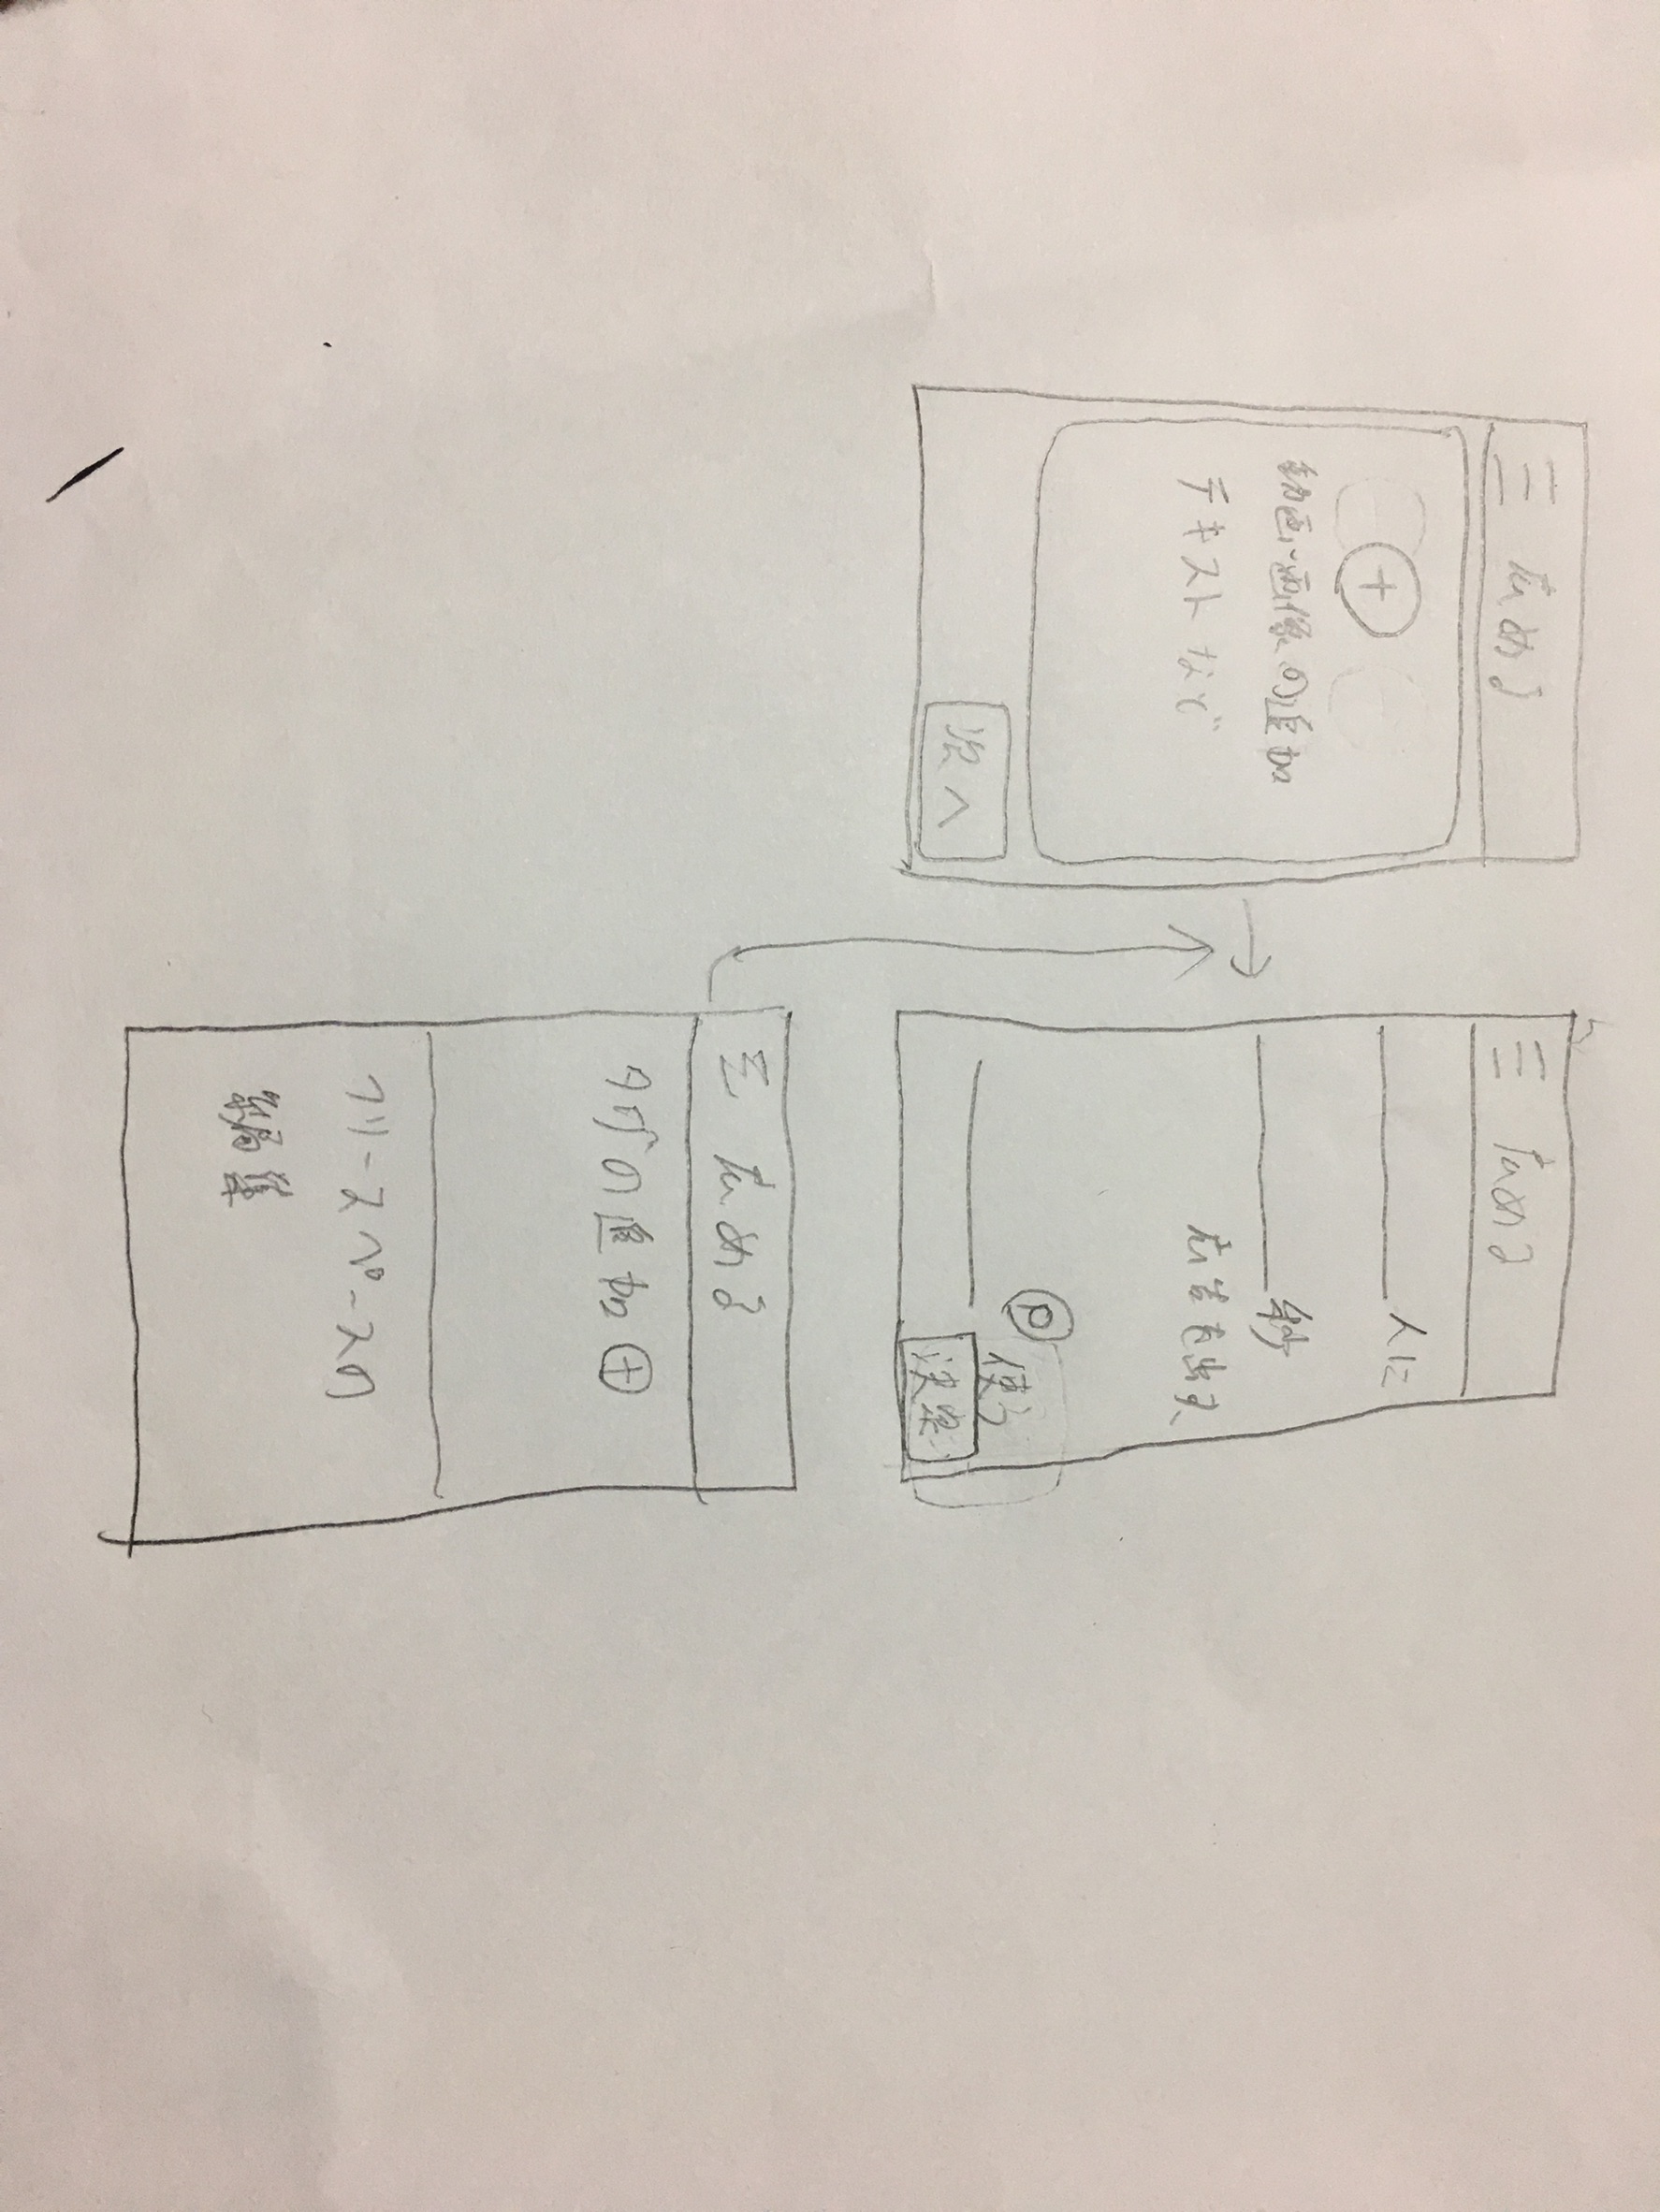 三 ためる
+
動画・画像の追加
テキストなど
次へ
三 ためる
人に
秒
広告を出す
P
使う
決定
三 ためる
タグの追加 +
フリースペースの
編集